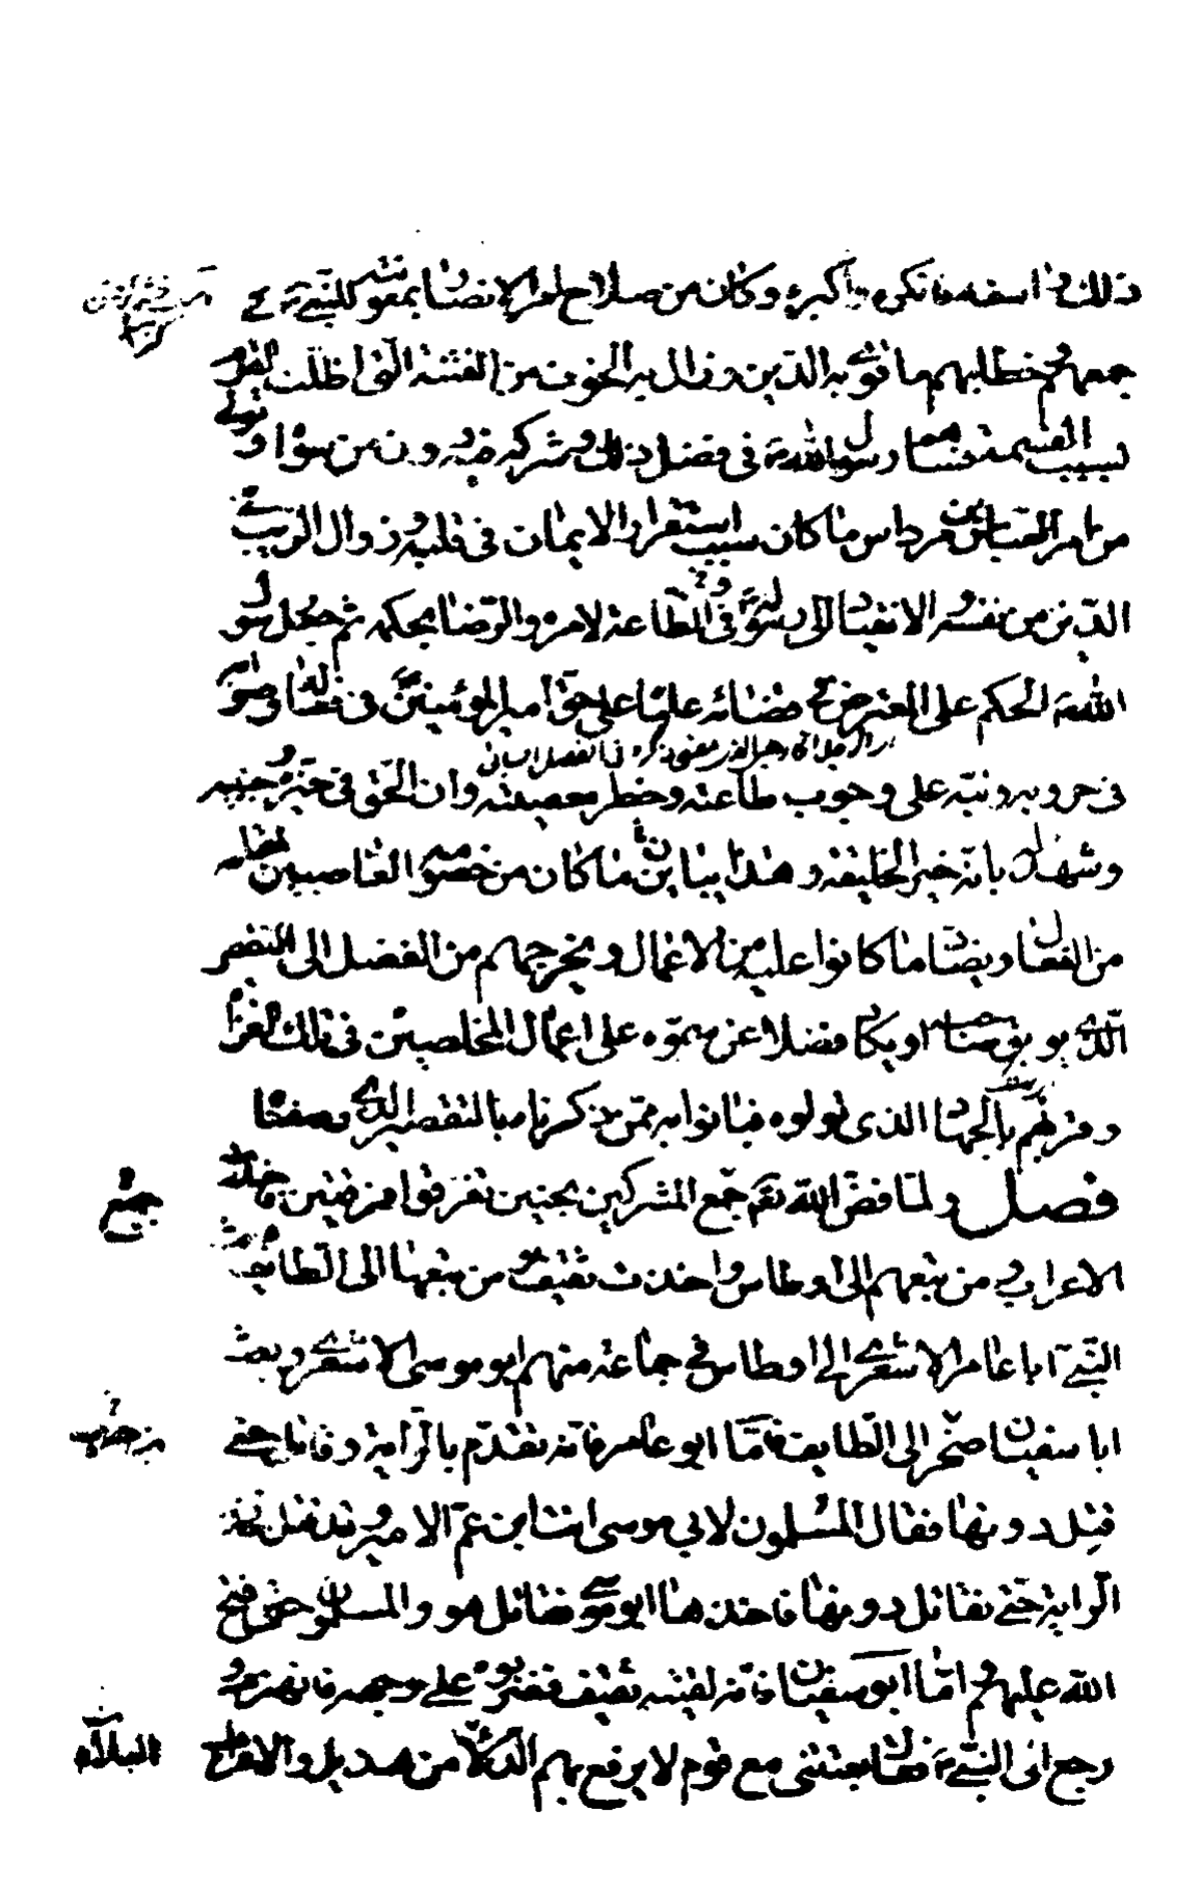 ذلك و اسفه فانكى واكبره وكان من صلاح امر الانصار بمعونته للنبى ص فى
جمعهم وخطابهم ما قوى به الدين وزال به الخوف من الفتنة التى اظلت القوم
بسبب القسمة فساهم رسول الله ص فى فضل ذلك وشركه فيه دون من سواه وتولى
من امر العباس بن مرداس ما كان سبب استقرار الايمان فى قلبه وزوال الريب فى
الدين من نفسه والانقياد الى رسول الله ص وفى الطاعة لامره والرضا بحكمه ثم جعل رسول
الله ص الحكم على المعترض فى قضائه علما على حق امير المؤمنين ع فى فعاله وصوابه
فى حروبه ونبه على وجوب طاعته وخطر معصيته وان الحق فى حيزه وجنبته
وشهد له بانه خير الخليفة وهذا يباين ما كان من خصومه الغاصبين لمقامه
من الفعال ويضاد ما كانوا عليه من الاعمال ويخرجهم من الفضل الى النقص
الذى يوبق صاحبه او يكاد فضلا عن سموه على اعمال المخلصين فى تلك الغزاة
وقربهم بالجهاد الذى تولوه فبانوا به ممن ذكرناه بالتقصير الذى وصفناه
فصل ولما فض الله تعالى جمع المشركين بحنين تفرقوا فرقتين فاخذت
الاعراب ومن تبعهم الى اوطاس واخذت ثقيف ومن تبعها الى الطائف فبعث
النبى ص ابا عامر الاشعرى الى اوطاس فى جماعة منهم ابو موسى الاشعرى وبعث
ابا سفيان صخر الى الطايف فاما ابو عامر فانه تقدم بالراية وقاتل حتى
بن حرب
قتل دونها فقال المسلمون لابى موسى انت ابن عم الامير وقد قتل فخذ
الراية حتى نقاتل دونها فاخذها ابو موسى فقاتل هو والمسلمون حتى فتح
الله عليهم واما ابو سفيان فانه لقيته ثقيف فضربوه على وجهه فانهزم و
رجع الى النبى ص فقال بعثتنى مع قوم لا يرفع بهم الدلاء من هذيل والاعراب